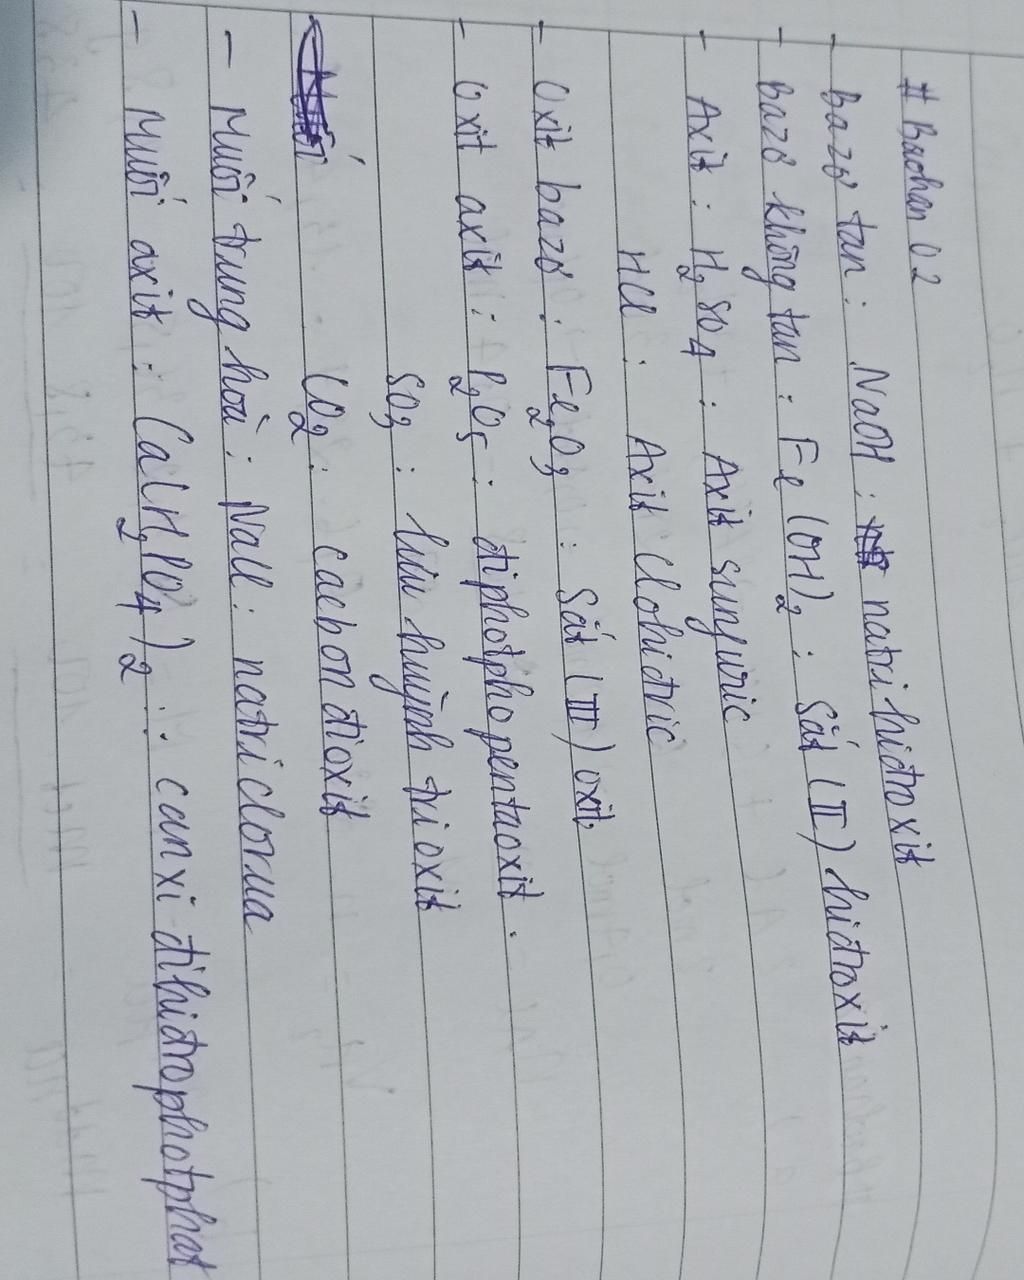 # Bachan 02
- Bazơ tan : NaOH : natri hiđroxit
- Bazơ không tan : Fe(OH)₂ : Sắt (II) hiđroxit
- Axit : H₂SO₄ : Axit sunfuric
HCl : Axit Clohiđric
- Oxit bazơ : Fe₂O₃ : Sắt (III) oxit
- Oxit axit : P₂O₅ : điphotpho pentaoxit.
SO₃ : lưu huỳnh tri oxit
CO₂ : cacbon đioxit
- Muối trung hoà : NaCl : natri clorua
- Muối axit : Ca(H₂PO₄)₂ : canxi đihiđrophotphat